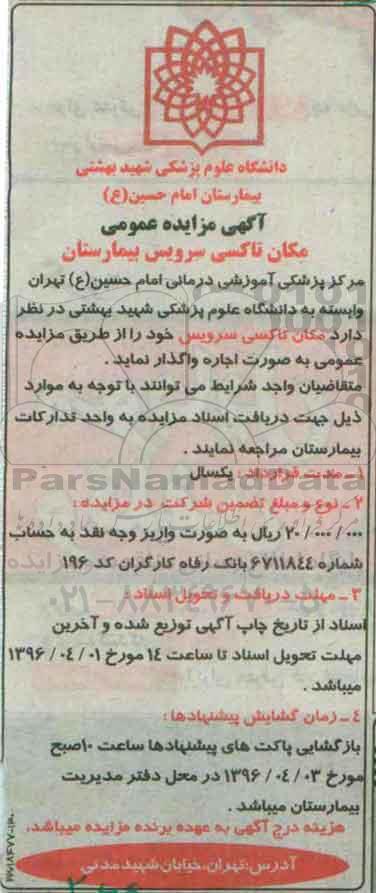 دانشگاه علوم پزشکی شهید بهشتی
بیمارستان امام حسین(ع)
آگهی مزایده عمومی
مکان تاکسی سرویس بیمارستان
مرکز پزشکی آموزشی درمانی امام حسین(ع) تهران
وابسته به دانشگاه علوم پزشکی شهید بهشتی در نظر
دارد مکان تاکسی سرویس خود را از طریق مزایده
عمومی به صورت اجاره واگذار نماید .
متقاضیان واجد شرایط می توانند با توجه به موارد
ذیل جهت دریافت اسناد مزایده به واحد تدارکات
بیمارستان مراجعه نمایند .
۱ـ مدت قرارداد : یکسال
ParsNamadData
۲ ـ نوع و مبلغ تضمین شرکت در مزایده :
۲۰/۰۰۰/۰۰۰ ریال به صورت واریز وجه نقد به حساب
شماره ۶۷۱۱۸۴۴ بانک رفاه کارگران کد ۱۹۶
۳ ـ مهلت دریافت و تحویل اسناد :
اسناد از تاریخ چاپ آگهی توزیع شده و آخرین
مهلت تحویل اسناد تا ساعت ۱۴ مورخ ۱۳۹۶/۰۴/۰۱
میباشد .
۴ ـ زمان گشایش پیشنهادها :
بازگشایی پاکت های پیشنهادها ساعت ۱۰صبح
مورخ ۱۳۹۶/۰۴/۰۳ در محل دفتر مدیریت
بیمارستان میباشد .
هزینه درج آگهی به عهده برنده مزایده میباشد.
آدرس:تهران، خیابان شهید مدنی